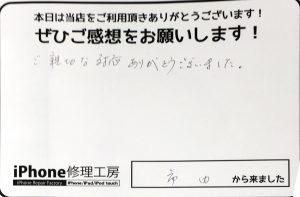 本日は当店をご利用頂きありがとうございます！
ぜひご感想をお願いします！
ご親切な対応ありがとうございました。
iPhone修理工房
iPhone Repair Factory iPhone/iPad/iPod touch
市内 から来ました